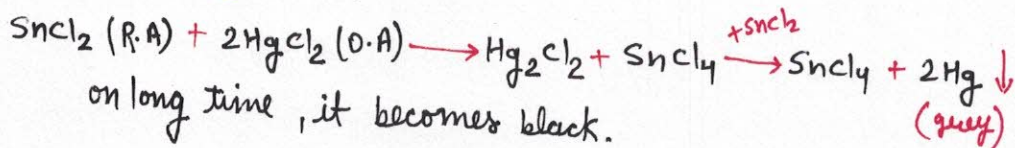 SnCl₂ (R.A) + 2HgCl₂ (O.A) ⟶ Hg₂Cl₂ + SnCl₄ ⟶ +SnCl₂ SnCl₄ + 2Hg ↓
on long time, it becomes black. (grey)